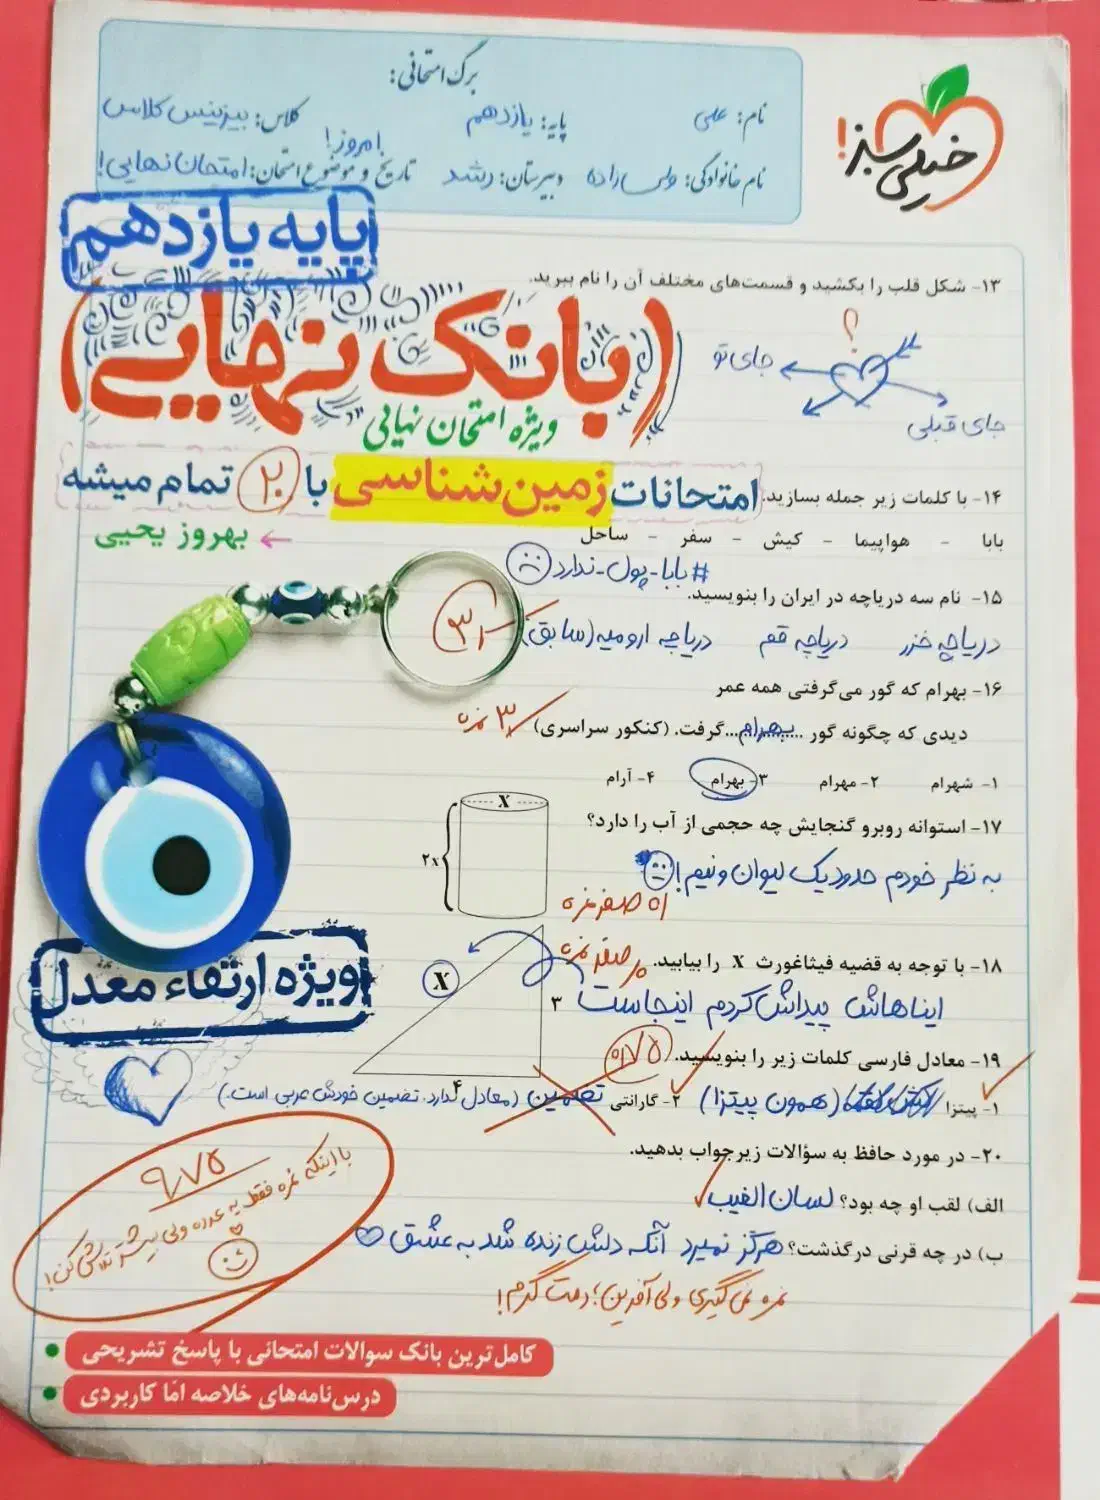 برگ امتحانی:
نام: علی
پایه: یازدهم
کلاس: بیزینس کلاس
نام خانوادگی: ولی‌زاده
دبیرستان: رشد
تاریخ و موضوع امتحان: امتحان نهایی!
امروز!
خیلی سبز!
پایه یازدهم
۱۳- شکل قلب را بکشید و قسمت‌های مختلف آن را نام ببرید.
؟
جای تو
جای قبلی
(بانک نهایی)
ویژه امتحان نهایی
امتحانات زمین‌شناسی با ۲۰ تمام میشه
بهروز یحیی
۱۴- با کلمات زیر جمله بسازید.
بابا - هواپیما - کیش - سفر - ساحل
#بابا-پول-ندارد
۱۵- نام سه دریاچه در ایران را بنویسید.
دریاچه خزر دریاچه قم دریاچه ارومیه (سابق)
۱۶- بهرام که گور می‌گرفتی همه عمر
دیدی که چگونه گور ...بهرام...گرفت. (کنکور سراسری)
۳ نمره
۱- شهرام ۲- مهرام ۳- بهرام ۴- آرام
۱۷- استوانه روبرو گنجایش چه حجمی از آب را دارد؟
X
۲x
به نظر خودم حدود یک لیوان و نیم!
صفر نمره
۱۸- با توجه به قضیه فیثاغورث X را بیابید.
صفر نمره
X
۳
۴
ایناهاش پیداش کردم اینجاست
۱۹- معادل فارسی کلمات زیر را بنویسید.
۰/۷۵
۱- پیتزا (همون پیتزا) ۲- گارانتی تضمین (معادل ندارد. تضمین خودش عربی است.)
۲۰- در مورد حافظ به سؤالات زیر جواب بدهید.
الف) لقب او چه بود؟ لسان الغیب
ب) در چه قرنی درگذشت؟ هرگز نمیرد آنکه دلش زنده شد به عشق
نمره نمی‌گیری ولی آفرین؛ دمت گرم!
ویژه ارتقاء معدل
۹٫۷۵
با اینکه نمره فقط یه عدده ولی بیشتر تلاش کن!
کامل‌ترین بانک سوالات امتحانی با پاسخ تشریحی
درس‌نامه‌های خلاصه امّا کاربردی